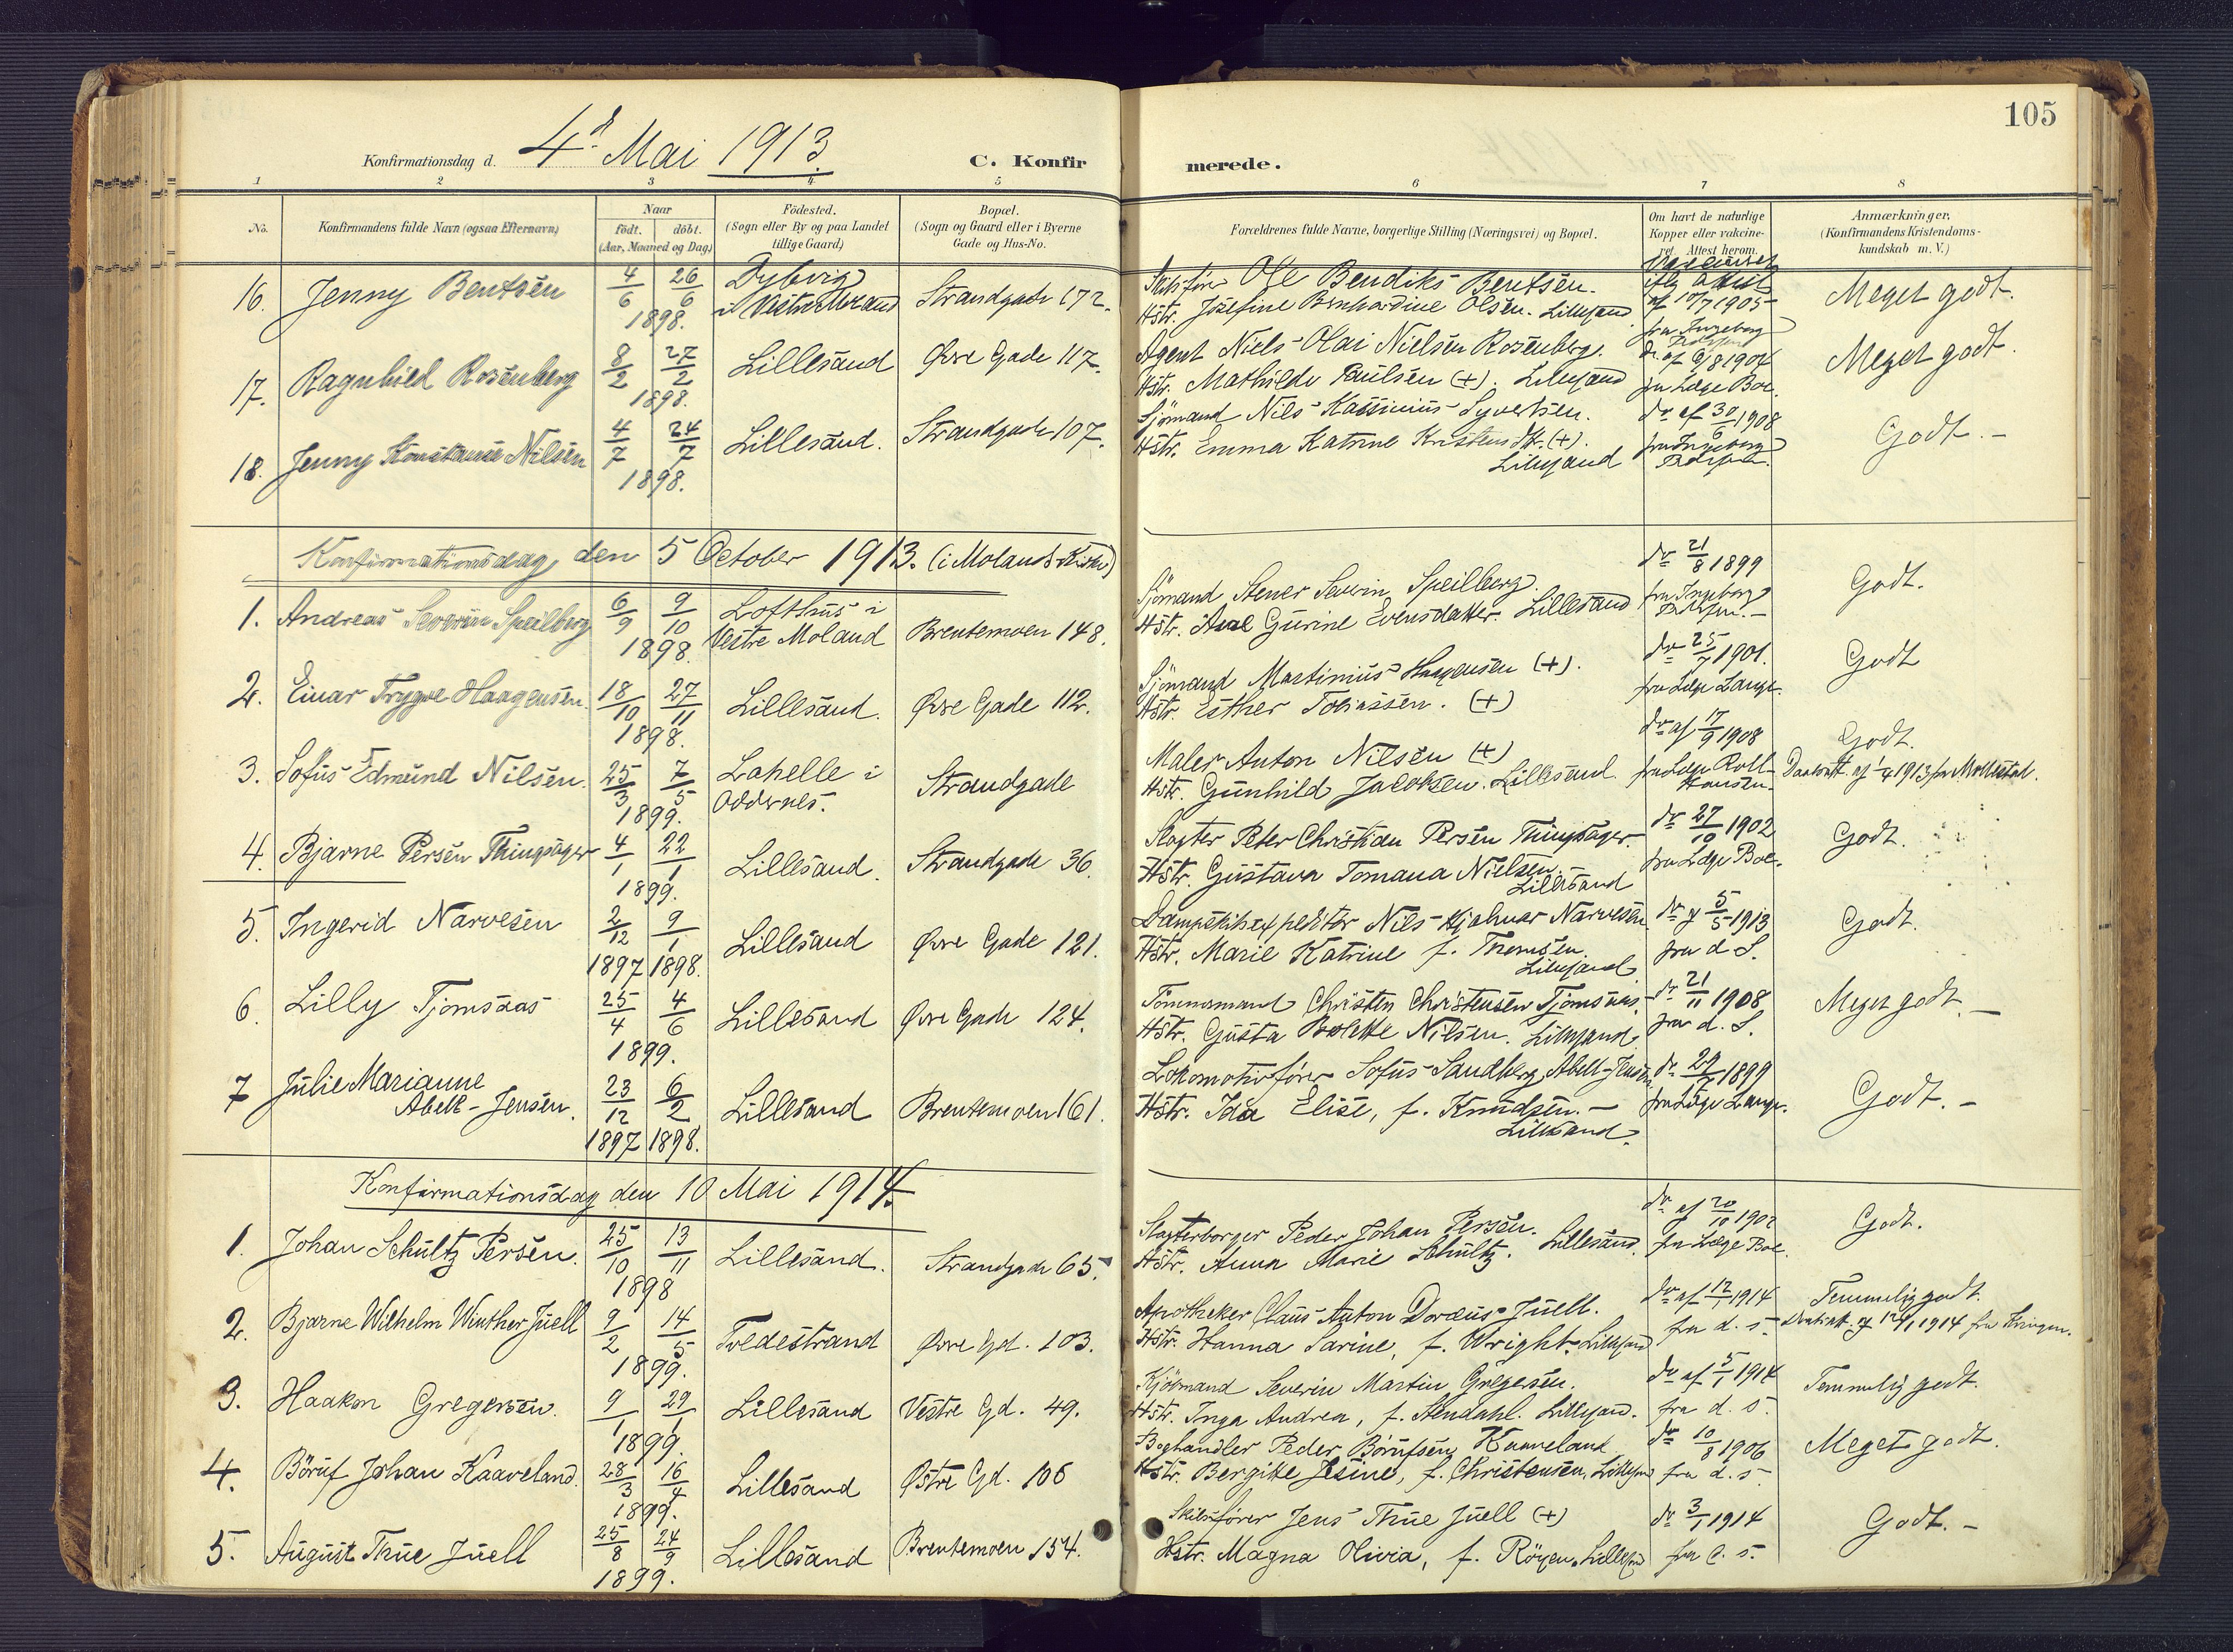 105
Konfirmationsdag d. 4d. Mai 1913.
C. Konfirmerede.
1 2 3 4 5 6 7 8
No.
Konfirmandens fulde Navn (ogsaa Efternavn)
Naar
født. døbt.
(Aar, Maaned og Dag)
Fødested.
(Sogn eller By og paa Landet
tillige Gaard)
Bopæl.
(Sogn og Gaard eller i Byerne
Gade og Hus-No.
Forældrenes fulde Navne, borgerlige Stilling (Næringsvei) og Bopæl.
Om havt de naturlige
Kopper eller vakcine-
ret. Attest herom.
Anmærkninger.
(Konfirmandens Kristendoms-
kundskab m. V.)
16. Jenny Bentsen 4/6 26/6 1898. Dybvig i Vestre Moland Strandgade 172.
Ole Bendiks Bentsen.
Hstr. Josefine Bernhardine Olsen. Lillesand
Vaccineret iflg attest af 10/7 1905 fra Ingeborg
Meget godt.
17. Ragnhild Rosenberg 8/2 27/2 1898. Lillesand Øvre Gade 117.
Agent Niels Olai Nielsen Rosenberg.
Hstr. Mathilde Paulsen (+). Lillesand
do af 9/8 1904 fra Læge Boe.
Meget godt.
18. Jenny Konstanse Nilsen 4/7 24/7 1898. Lillesand. Strandgade 107.
Sjömand Nils Kassinius Syvertsen.
Hstr. Emma Katrine Kristensdtr. (+).
Lillesand
do af 30/6 1908 fra Ingeborg
Godt. -
Konfirmationsdag den 5 October 1913. (i Molands Kirke)
1. Andreas Severin Speilberg 6/9 9/10 1898. Lofthus i Vestre Moland Brentemoen 148.
Sjömand Stener Severin Speilberg.
Hstr. Ane Gurine Evensdatter. Lillesand
do 21/8 1899 fra Ingeborg
Godt.
2. Einar Trygve Haagensen. 18/10 27/11 1898. Lillesand. Øvre Gade 112.
Sjömand Martinius Haagensen (+).
Hstr. Esther Tobiassen. (+)
do 25/7 1901. fra Læge Lange.
Godt
3. Sofus Edmund Nilsen. 25/3 7/5 1899. Lahelle i Oddernes. Strandgade
Maler Anton Nilsen (+)
Hstr. Gunhild Jacobsen. Lillesand.
do af 17/9 1908 fra Læge Roll-Hansen.
Godt.
Daabsatt. af 1/4 1913 fra Mollestad.
4. Bjarne Persen Thingsager 4/1 22/1 1899. Lillesand. Strandgade 36.
Slagter Peter Christian Persen Thingsager.
Hstr. Gustava Tomana Nielsen.
Lillesand
do 27/10 1902 fra Læge Boe.
Godt.
5. Ingerid Narvesen 2/12 1897 9/1 1898. Lillesand Øvre Gade 121.
Dampskibsexpeditør Nils Hjalmar Narvesen
Hstr. Marie Katrine f. Thomsen.
Lillesand
do af 5/5 1913 fra d. S.
Godt.
6. Lilly Tjomsaas 25/4 4/6 1899. Lillesand Øvre Gade 124.
Tömmermand Christen Christensen Tjomsaas.
Hstr. Gusta Bolette Nilsen. Lillesand.
do 21/11 1908 fra d. S.
Meget godt. -
7 Julie Marianne
Abell-Jensen. 23/12 1897 6/2 1898. Lillesand Brentemoen 161.
Lokomotivförer Sofus Sandberg Abell-Jensen
Hstr. Ida Elise, f. Knudsen. -
Lillesand.
1899 fra Læge Lange.
Godt. -
Konfirmationsdag den 10 Mai 1914.
1. Johan Schultz Persen. 25/10 13/11 1898 Lillesand. Strandgade 65.
Slagterborger Peder Johan Persen.
Hstr. Anna Marie Schultz. Lillesand.
do af 20/10 1902 fra Læge Boe.
Godt.
2. Bjarne Wilhelm Winther Juell 9/2 14/5 1899. Tvedestrand Øvre Gd. 103.
Apotheker Claus Anton Doræus Juell.
Hstr. Hanna Sarine, f. Wright. Lillesand
do af 12/1 1914 fra d. s.
Temmelig godt.
3. Haakon Gregersen. 9/1 29/1 1899. Lillesand Vestre Gd. 49.
Kjöbmand Severin Martin Gregersen.
Hstr. Inga Andrea, f. Stendahl. Lillesand.
do af 5/1 1914 fra d. s.
Temmelig godt.
4. Böruf Johan Kaaveland. 28/3 16/4 1899. Lillesand Østre Gd. 106
Boghandler Peder Börufsen Kaaveland
Hstr. Bergitte Jesine, f. Christensen, Lillesand
do 10/8 1906 fra d. s.
Meget godt.
5. August Thue Juell 25/8 24/9 1899. Lillesand Brentemoen 154.
Skibsförer Jens Thue Juell (+)
Hstr. Magna Olivia, f. Röyen. Lillesand
do 3/1 1914 fra d. s.
Godt. -